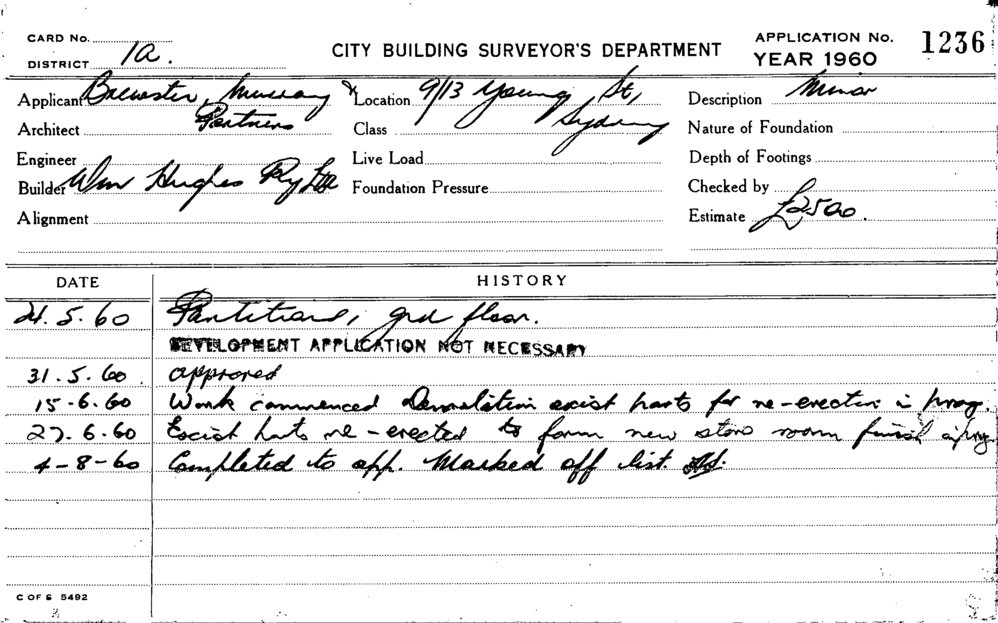 CARD No.
DISTRICT 1a.
CITY BUILDING SURVEYOR'S DEPARTMENT
APPLICATION No. 1236
YEAR 1960
Applicant Brewster, Murray
Architect Partners
Engineer
Builder Wm Hughes Pty Ltd
Alignment
Location 9/13 Young St,
Class Sydney
Live Load
Foundation Pressure
Description Minor
Nature of Foundation
Depth of Footings
Checked by
Estimate £2500.
DATE HISTORY
24.5.60 Partitions, grd floor.
DEVELOPMENT APPLICATION NOT NECESSARY
31.5.60. approved
15-6.60 Work commenced Demolition exist parts for re-erection i prog.
27.6.60 Exist parts re-erected to form new store room
4-8-60 Completed to app. Marked off list.
C OF S 5492